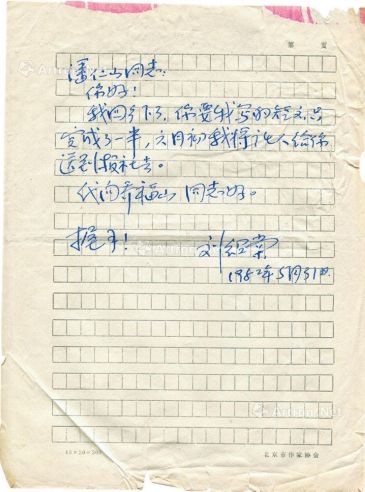 第 页
潘仁山同志：
你好！
我回乡下了，你要我写的短文只
完成了一半，六月初我将托人给你
送到报社去。
代向乔福山同志好。
握手！
刘绍棠
1982年5月31日
15×20=300
北京市作家协会